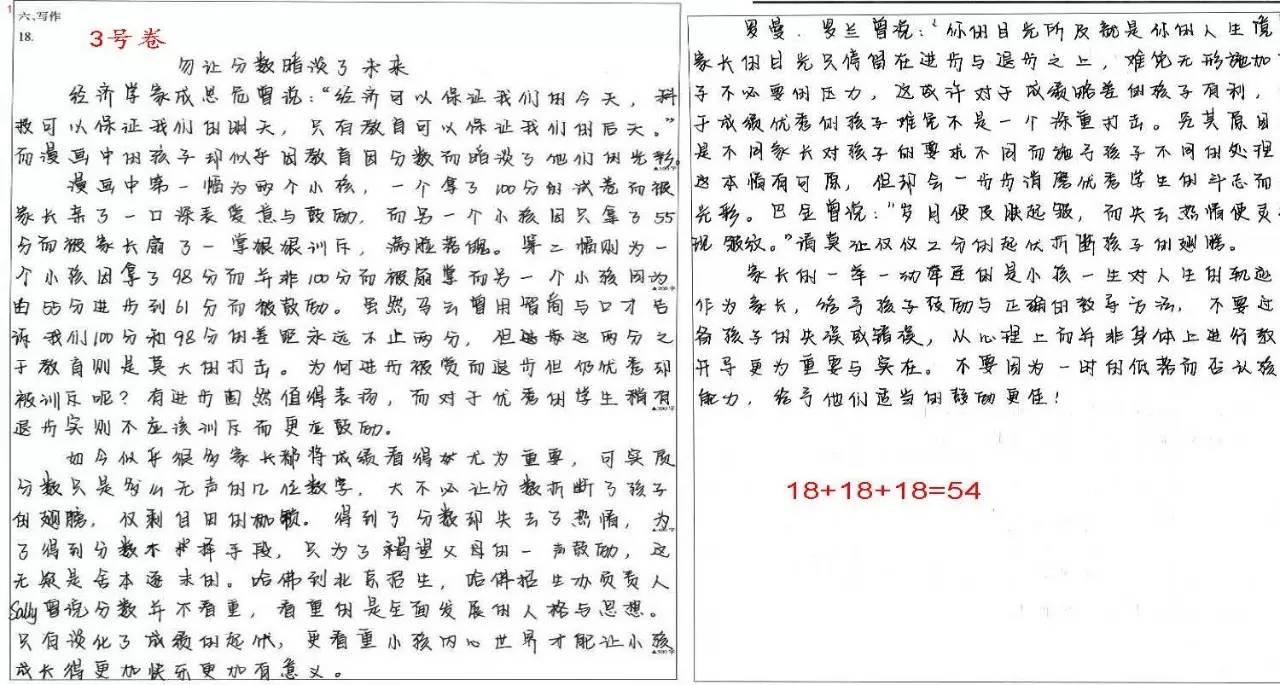 1
六、写作
18.
3号卷
勿让分数暗淡了未来
经济学家成思危曾说：“经济可以保证我们的今天，科
技可以保证我们的明天，只有教育可以保证我们的后天。”
而漫画中的孩子却似乎因教育因分数而暗淡了他们的光彩。
漫画中第一幅为两个小孩，一个拿了100分的试卷而被
家长亲了一口深表爱意与鼓励，而另一个小孩因只拿了55
分而被家长扇了一掌狠狠训斥，满脸苦愧。第二幅则为一
▲200字
个小孩因拿了98分而并非100分而被扇掌而另一个小孩因为
由55分进步到61分而被鼓励。虽然马云曾用智简与口才告
诉我们100分和98分的差距永远不止两分，但这两分之
于教育则是莫大的打击。为何进步被赏而退步但仍优秀却
被训斥呢？有进步固然值得表扬，而对于优秀的学生稍有
退步实则不应该训斥而更应鼓励。
如今似乎很多家长都将成绩看得尤为重要，可实质
分数只是多么无声的几位数字，大不必让分数折断了孩子
的翅膀，仅剩自由的枷锁。得到了分数却失去了热情，为
了得到分数不择手段，只为了渴望父母的一声鼓励，这
无疑是舍本逐末的。哈佛到北京招生，哈佛招生办负责人
Sally曾说分数并不看重，看重的是全面发展的人格与思想。
只有淡化了成绩的起伏，更看重小孩内心世界才能让小孩
成长得更加快乐更加有意义。
罗曼．罗兰曾说：“你的目光所及就是你的人生境
家长的目光只停留在进步与退步之上，难免无形施加
子不必要的压力，这或许对于成绩略差的孩子有利，
于成绩优秀的孩子难免不是一个深重打击。究其原因
是不同家长对孩子的要求不同而施予孩子不同的处理
这本情有可原，但却会一步步消磨优秀学生的斗志而
光彩。巴金曾说：“岁月使皮肤起皱，而失去热情使灵
现皱纹。”请莫让仅仅2分的起伏折断孩子的翅膀。
家长的一举一动牵连的是小孩一生对人生的轨迹
作为家长，给予孩子鼓励与正确的教导方法，不要过
备孩子的失误或错误，从心理上而并非身体上进行教
开导更为重要与实在。不要因为一时的低落而否认孩
能力，给予他们适当的鼓励更佳！
18+18+18=54